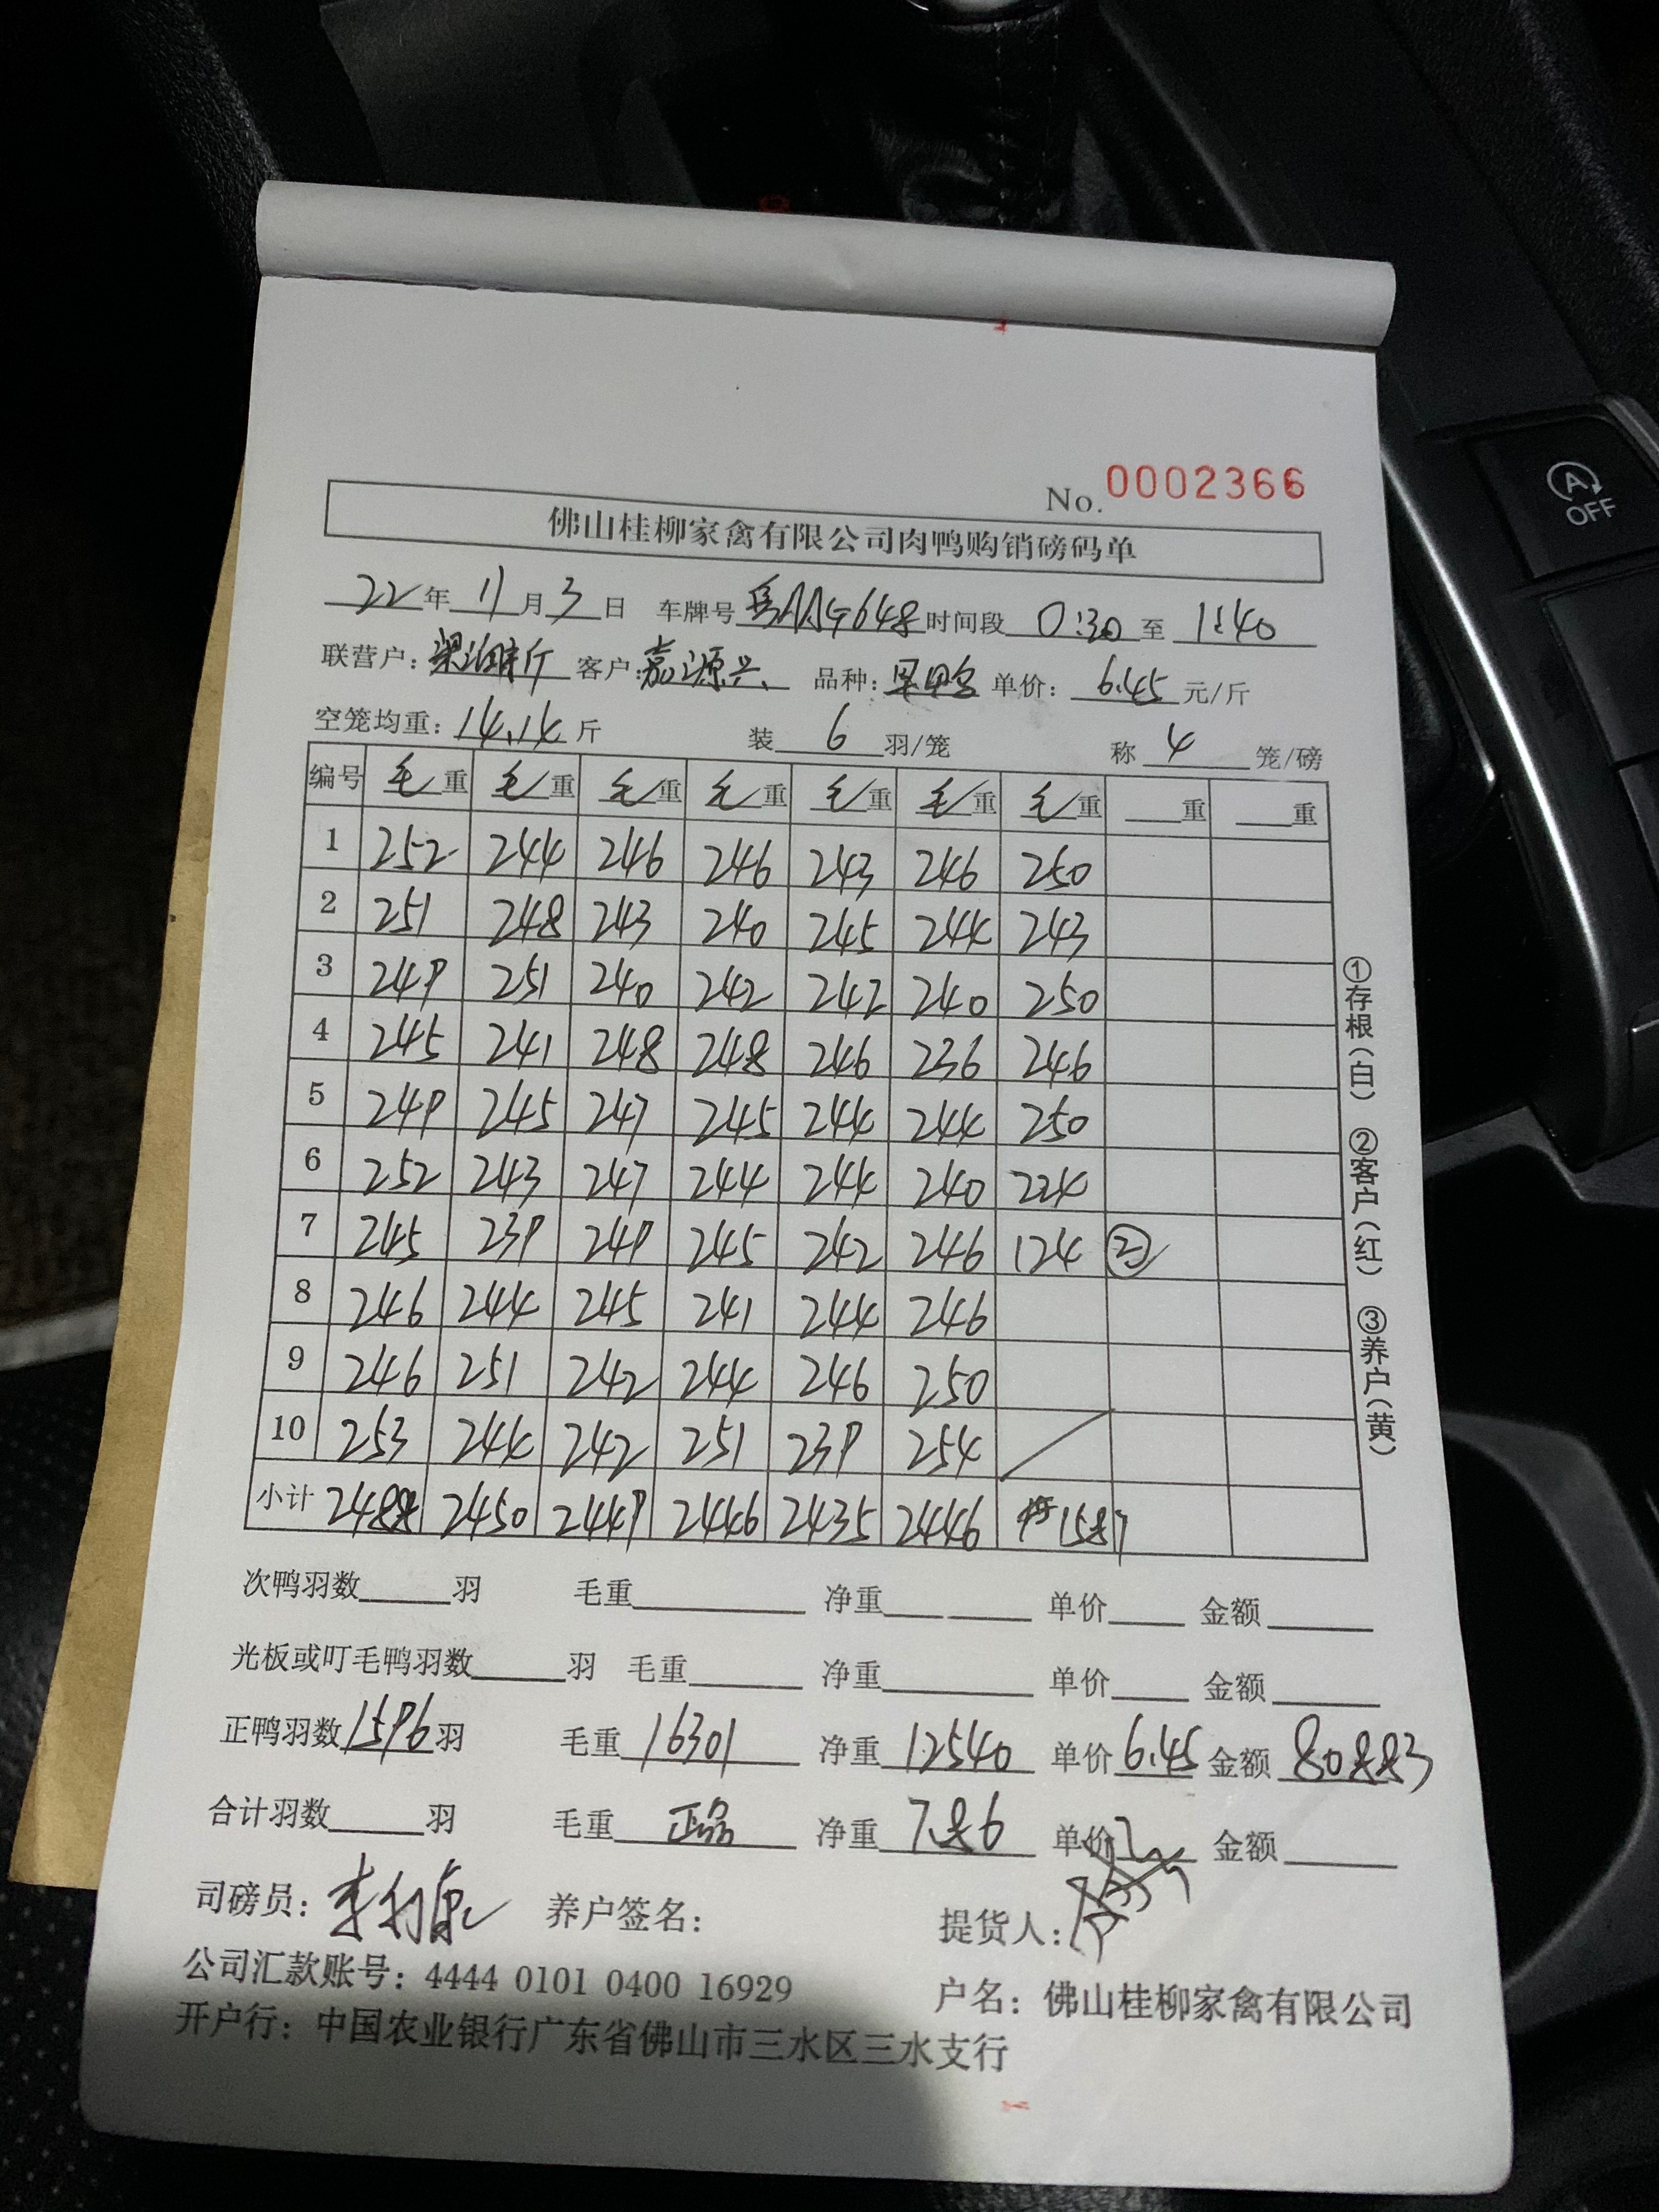 No. 0002366
佛山桂柳家禽有限公司肉鸭购销磅码单
22年11月3日 车牌号 AAG648 时间段 0:30 至 1:40
联营户: 客户: 嘉源兴 品种: 单价: 6.45 元/斤
空笼均重: 14.14 斤 装 6 羽/笼 称 4 笼/磅
编号 毛重 毛重 毛重 毛重 毛重 毛重 毛重 重 重
1 252 244 246 246 243 246 250
2 251 248 243 240 245 244 243
3 249 251 240 242 242 240 250
4 245 241 248 248 246 236 246
5 249 245 247 245 244 244 250
6 252 243 247 244 244 240 224
7 245 239 249 245 242 246 124 ②
8 246 244 245 241 244 246
9 246 251 242 244 246 250
10 253 244 242 251 239 254
小计 2488 2450 2449 2446 2435 2446 1587
次鸭羽数 羽 毛重 净重 单价 金额
光板或叮毛鸭羽数 羽 毛重 净重 单价 金额
正鸭羽数 1596 羽 毛重 16301 净重 12540 单价 6.45 金额 80883
合计羽数 羽 毛重 净重 7.86 单价 金额
司磅员: 养户签名: 提货人:
公司汇款账号: 4444 0101 0400 16929 户名: 佛山桂柳家禽有限公司
开户行: 中国农业银行广东省佛山市三水区三水支行
①存根(白) ②客户(红) ③养户(黄)
A
OFF